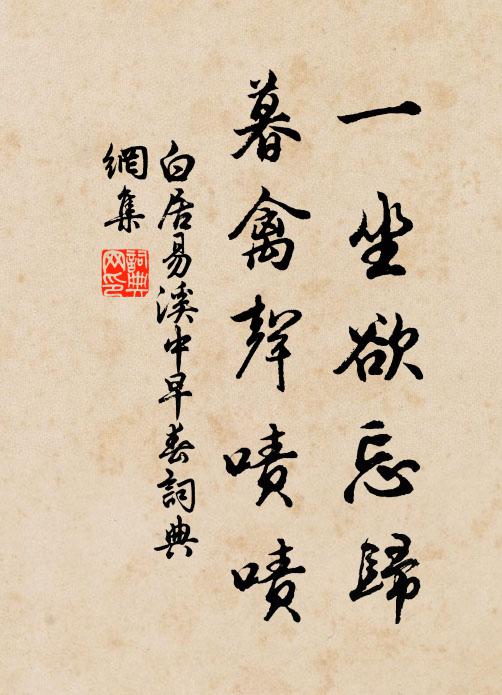 一坐欲忘歸
暮禽聲嘖嘖
白居易溪中早春詞典
網集
詞典
网印